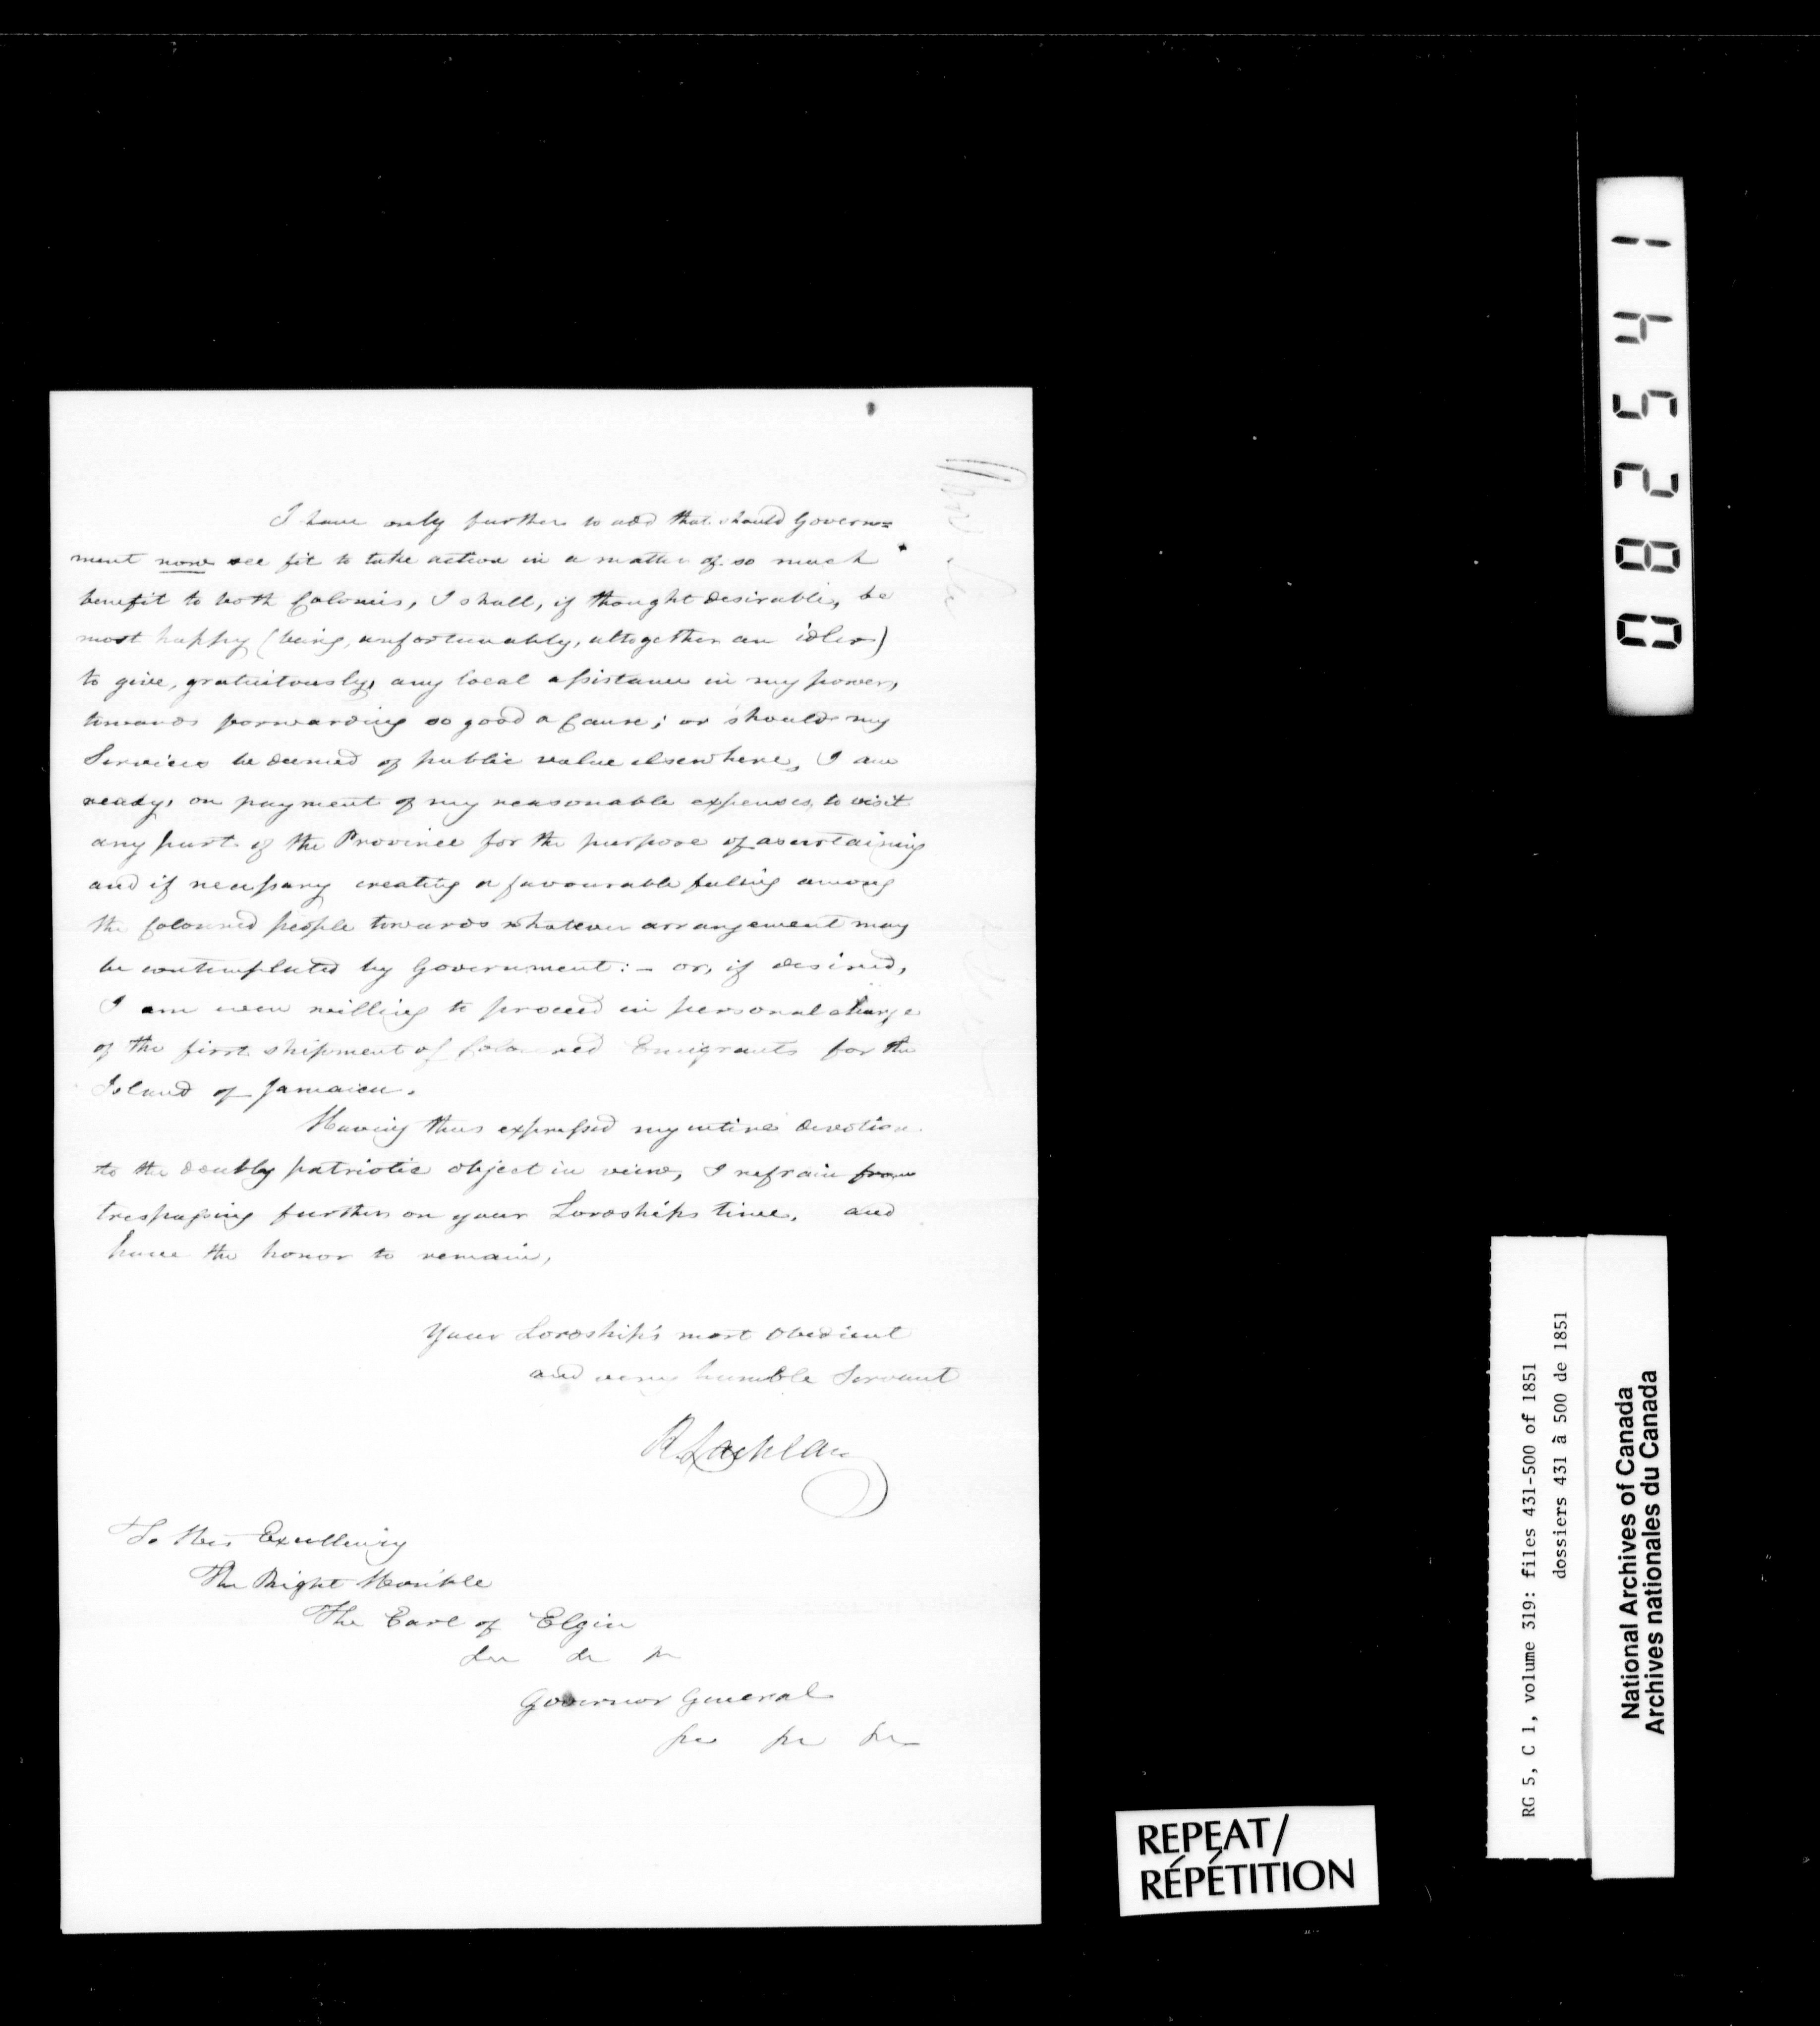 I have only further to add that should Govern=
ment now see fit to take action in a matter of so much
benefit to both Colonies, I shall, if thought desirable, be
most happy (being, unfortunately, altogether an idler)
to give, gratuitously, any local assistance in my power,
towards forwarding so good a Cause; or should my
Services be deemed of public value elsewhere, I am
ready, on payment of my reasonable expenses, to visit
any part of the Province for the purpose of ascertaining
and if necessary creating a favourable feeling among
the Coloured people towards whatever arrangement may
be contemplated by Government: – or, if desired,
I am even willing to proceed in personal charge
of the first shipment of Coloured Emigrants for the
Island of Jamaica.
Having thus expressed my entire devotion
to the doubly patriotic object in view, I refrain from
trespassing further on your Lordships time, and
have the honor to remain,
Your Lordship's most Obedient
and very humble Servant
R. Lachlan
To His Excellency
The Right Hon'ble
The Earl of Elgin
&c &c &c
Governor General
&c &c &c
082541
RG 5, C 1, volume 319: files 431-500 of 1851
dossiers 431 à 500 de 1851
National Archives of Canada
Archives nationales du Canada
REPEAT/
RÉPÉTITION